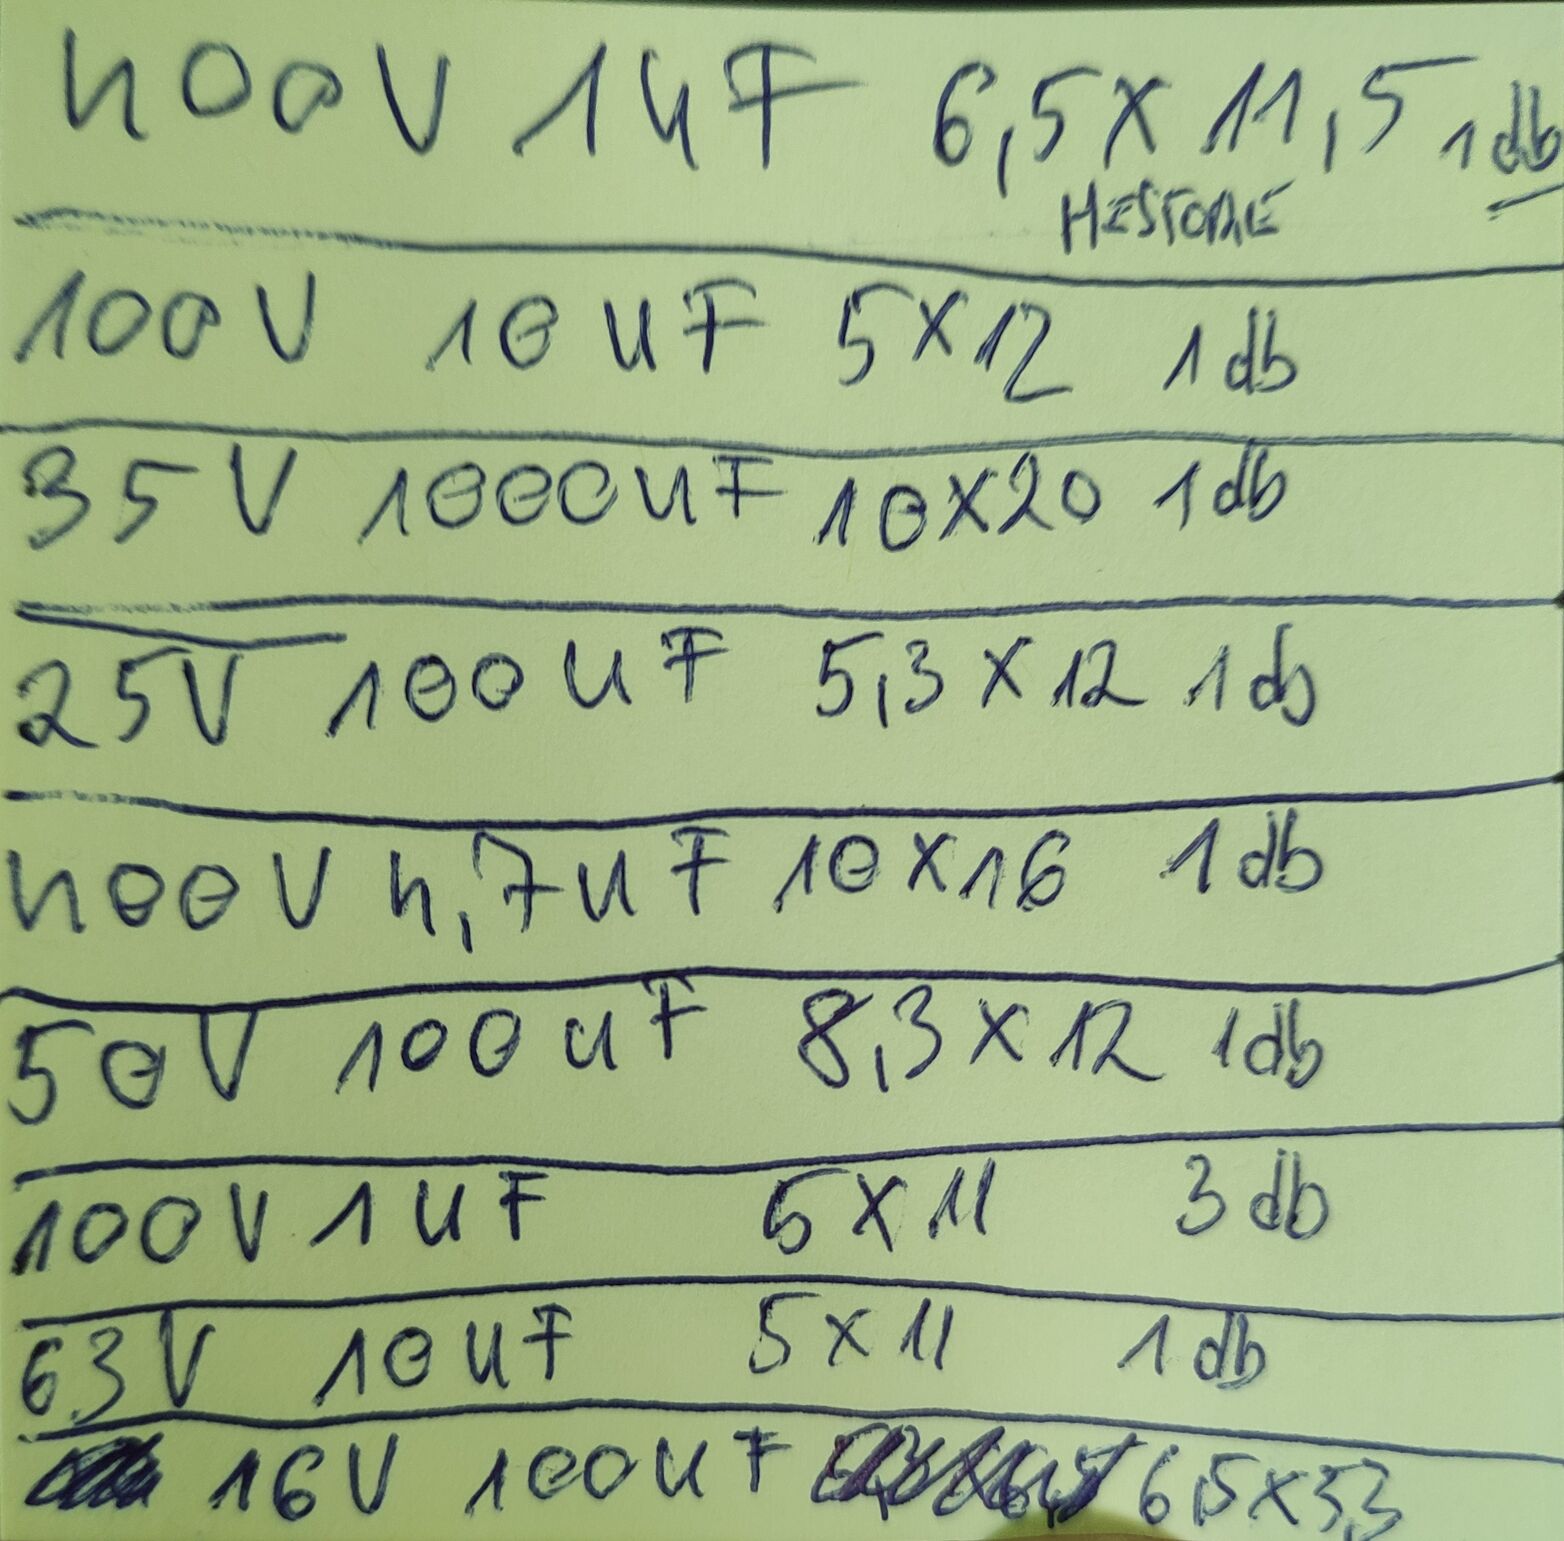 400V 1uF 6,5x11,5 1db
HESTORE
100V 10uF 5x12 1db
35V 1000uF 10x20 1db
25V 100uF 5,3x12 1db
400V 4,7uF 10x16 1db
50V 100uF 8,3x12 1db
100V 1uF 5x11 3db
63V 10uF 5x11 1db
16V 100uF 6,5x5,3